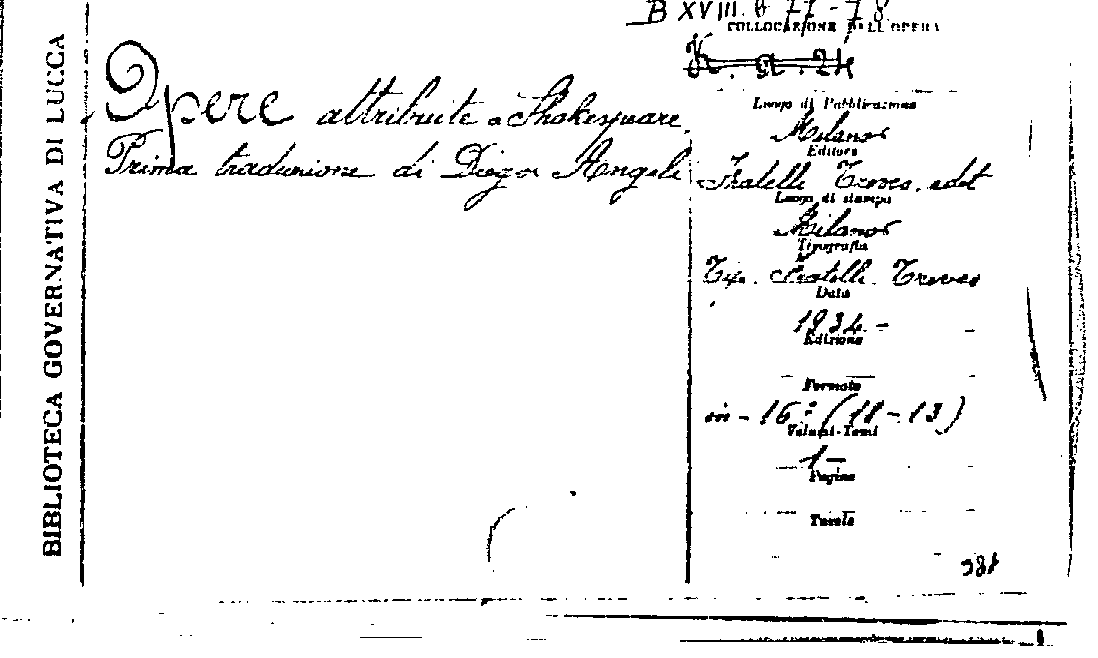 BIBLIOTECA GOVERNATIVA DI LUCCA
B XVIII. 6 77-78
COLLOCAZIONE DELL'OPERA
K. a. 24
Opere attribuite a Shakespeare.
Prima traduzione di Diego Angeli
Luogo di Pubblicazione
Milano
Editore
Fratelli Treves, edit
Luogo di stampa
Milano
Tipografia
Tip. Fratelli Treves
Data
1934 -
Edizione
Formato
in - 16° (11-13)
Volumi-Tomi
1-
Pagine
Tavole